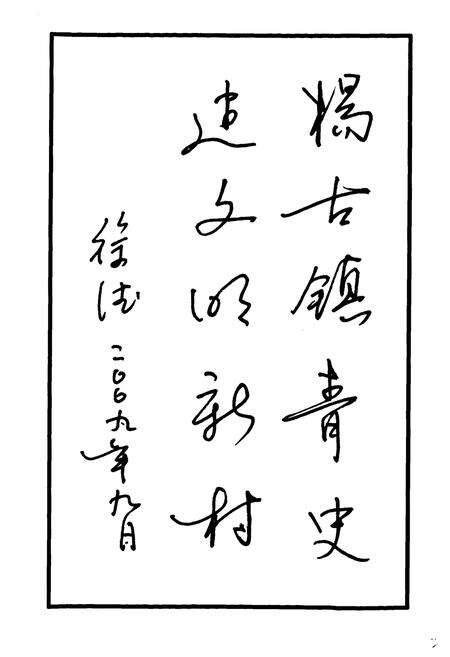 揚古鎮青史
建文明新村
徐
二〇〇九年九月